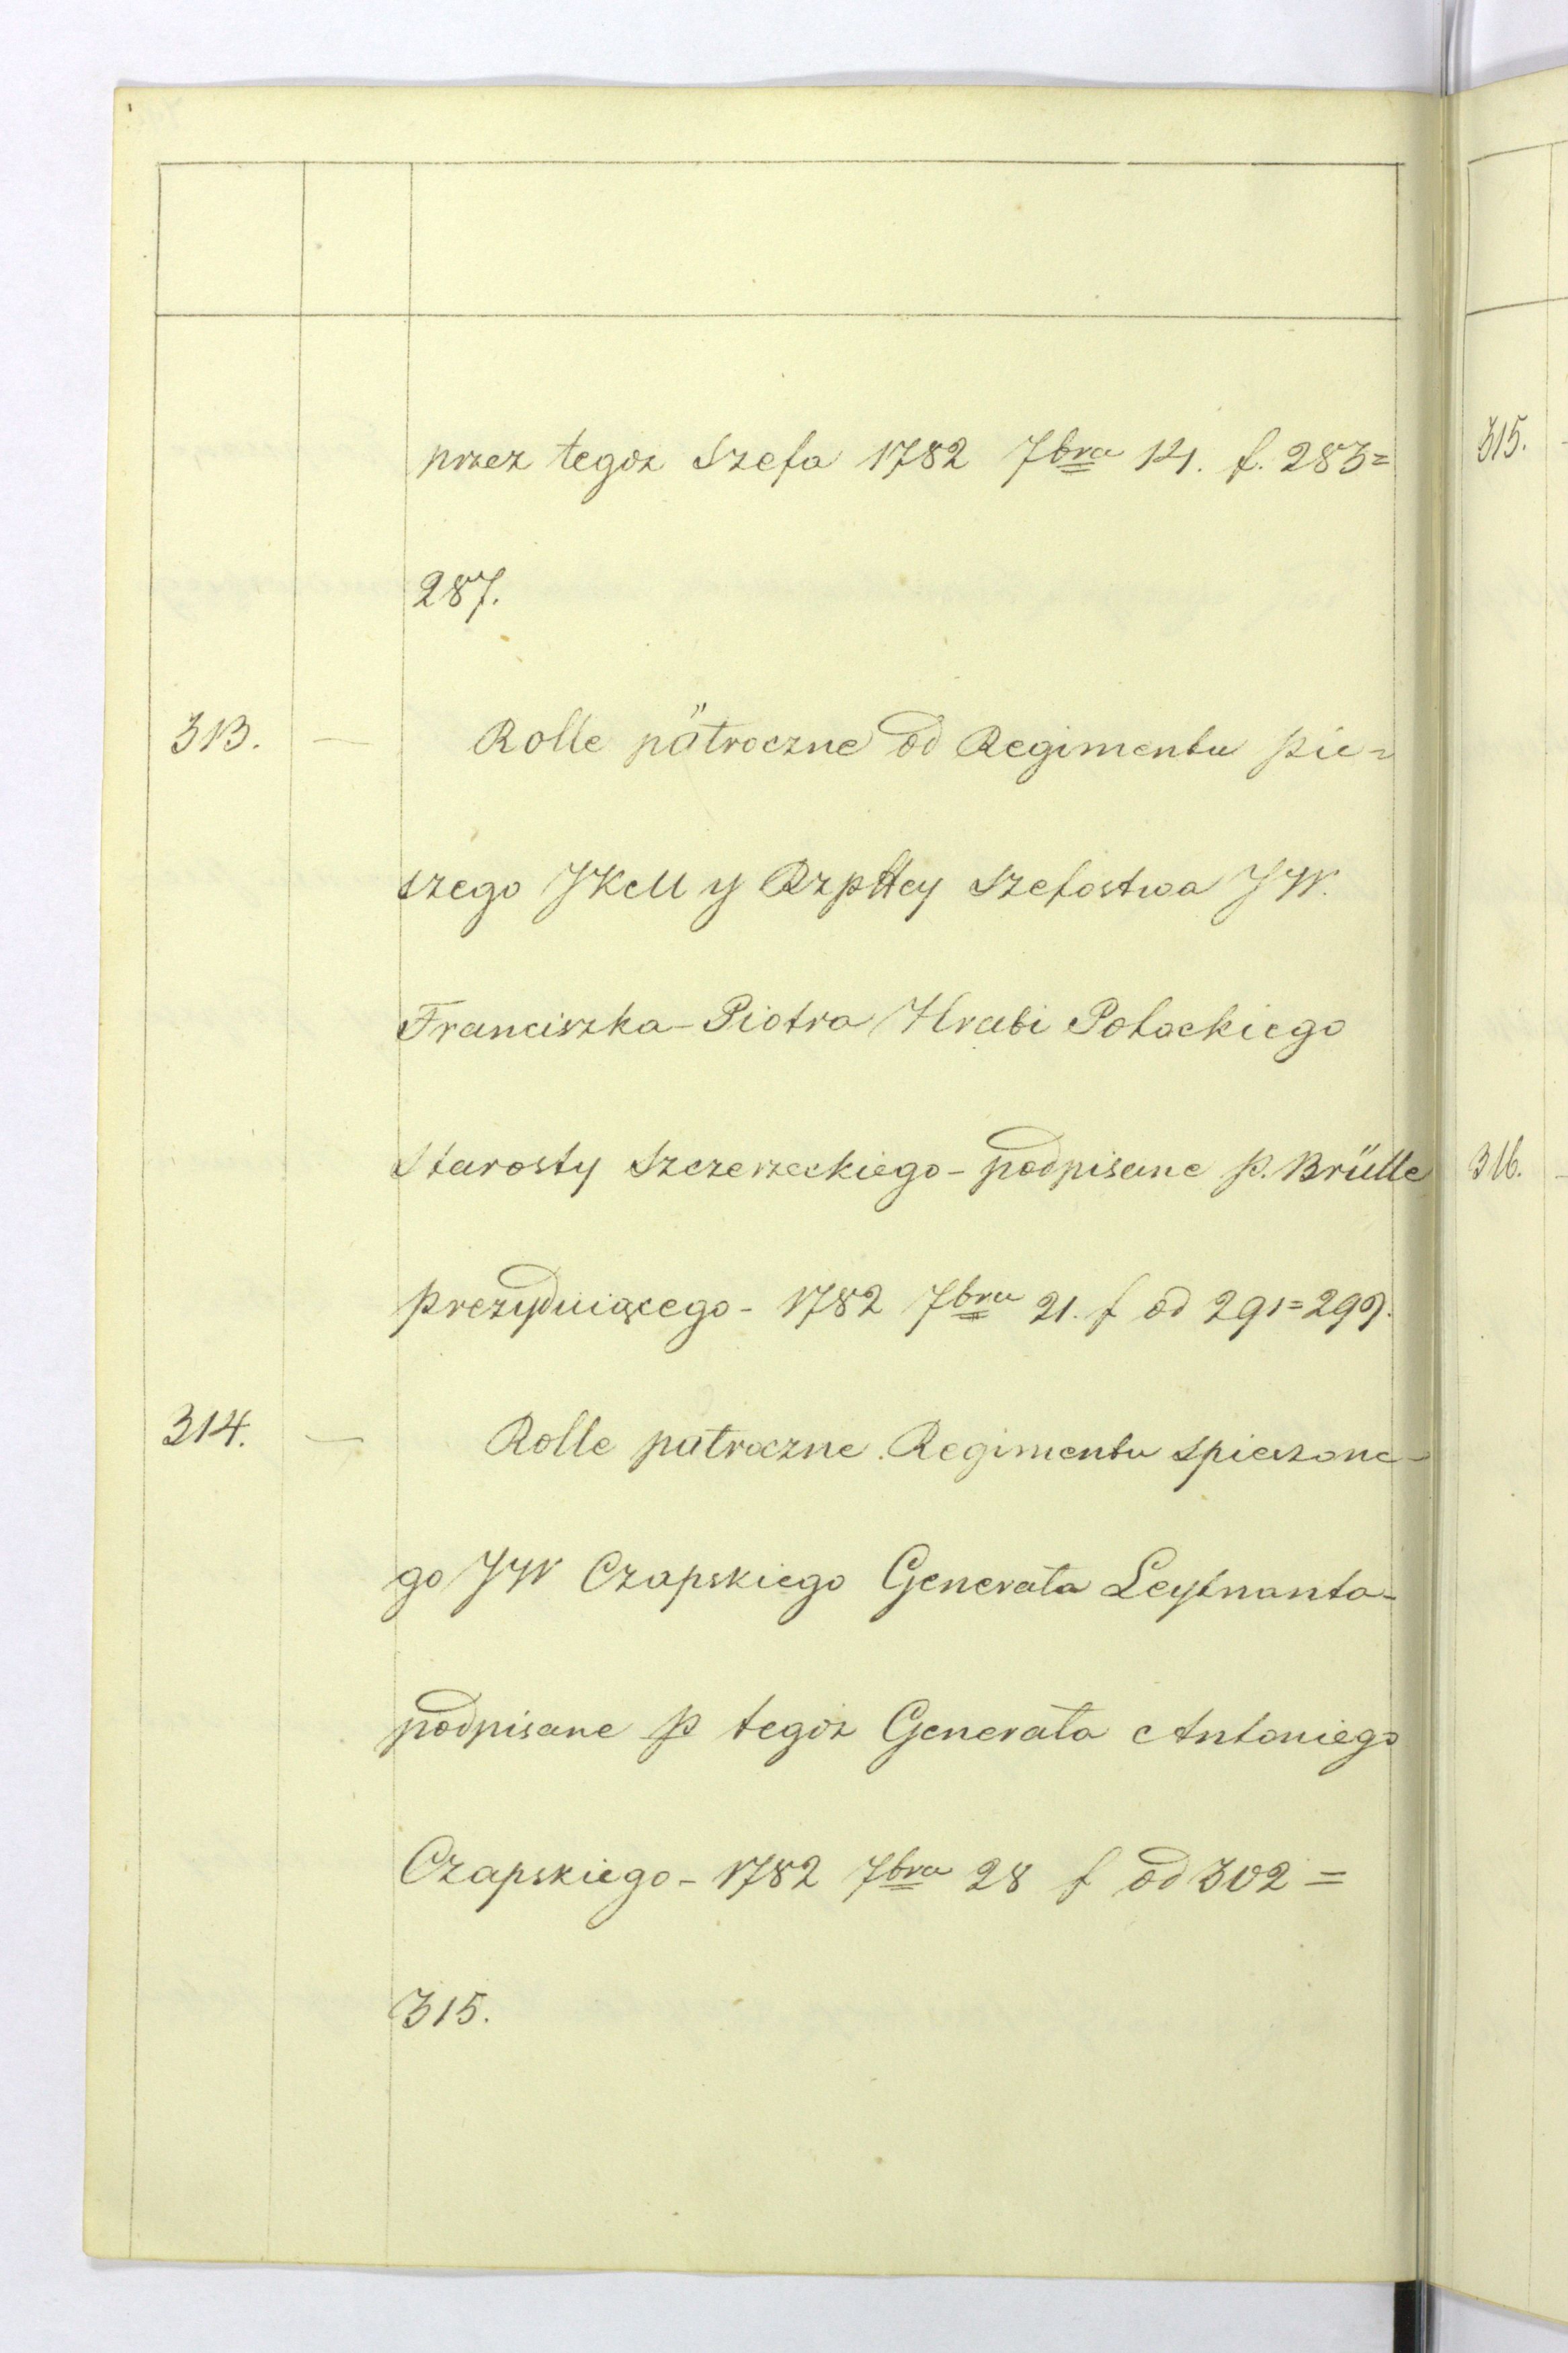 przez tegoz Szefa 1782 7bra 14. f. 283=
287.
313. — Rolle pułroczne od Regimentu pie=
szego JKM y Rzpltey Szefostwa JW.
Franciszka-Piotra Hrabi Potockiego
Starosty Szczerzeckiego - podpisane p. Brülle
prezyduiącego - 1782 7bra 21. f od 291=299.
314. — Rolle pułroczne Regimentu spieszone-
go JW Czapskiego Generała Leytnanta-
podpisane p tegóz Generała Antoniego
Czapskiego - 1782 7bra 28 f od 302=
315.
315.
316.